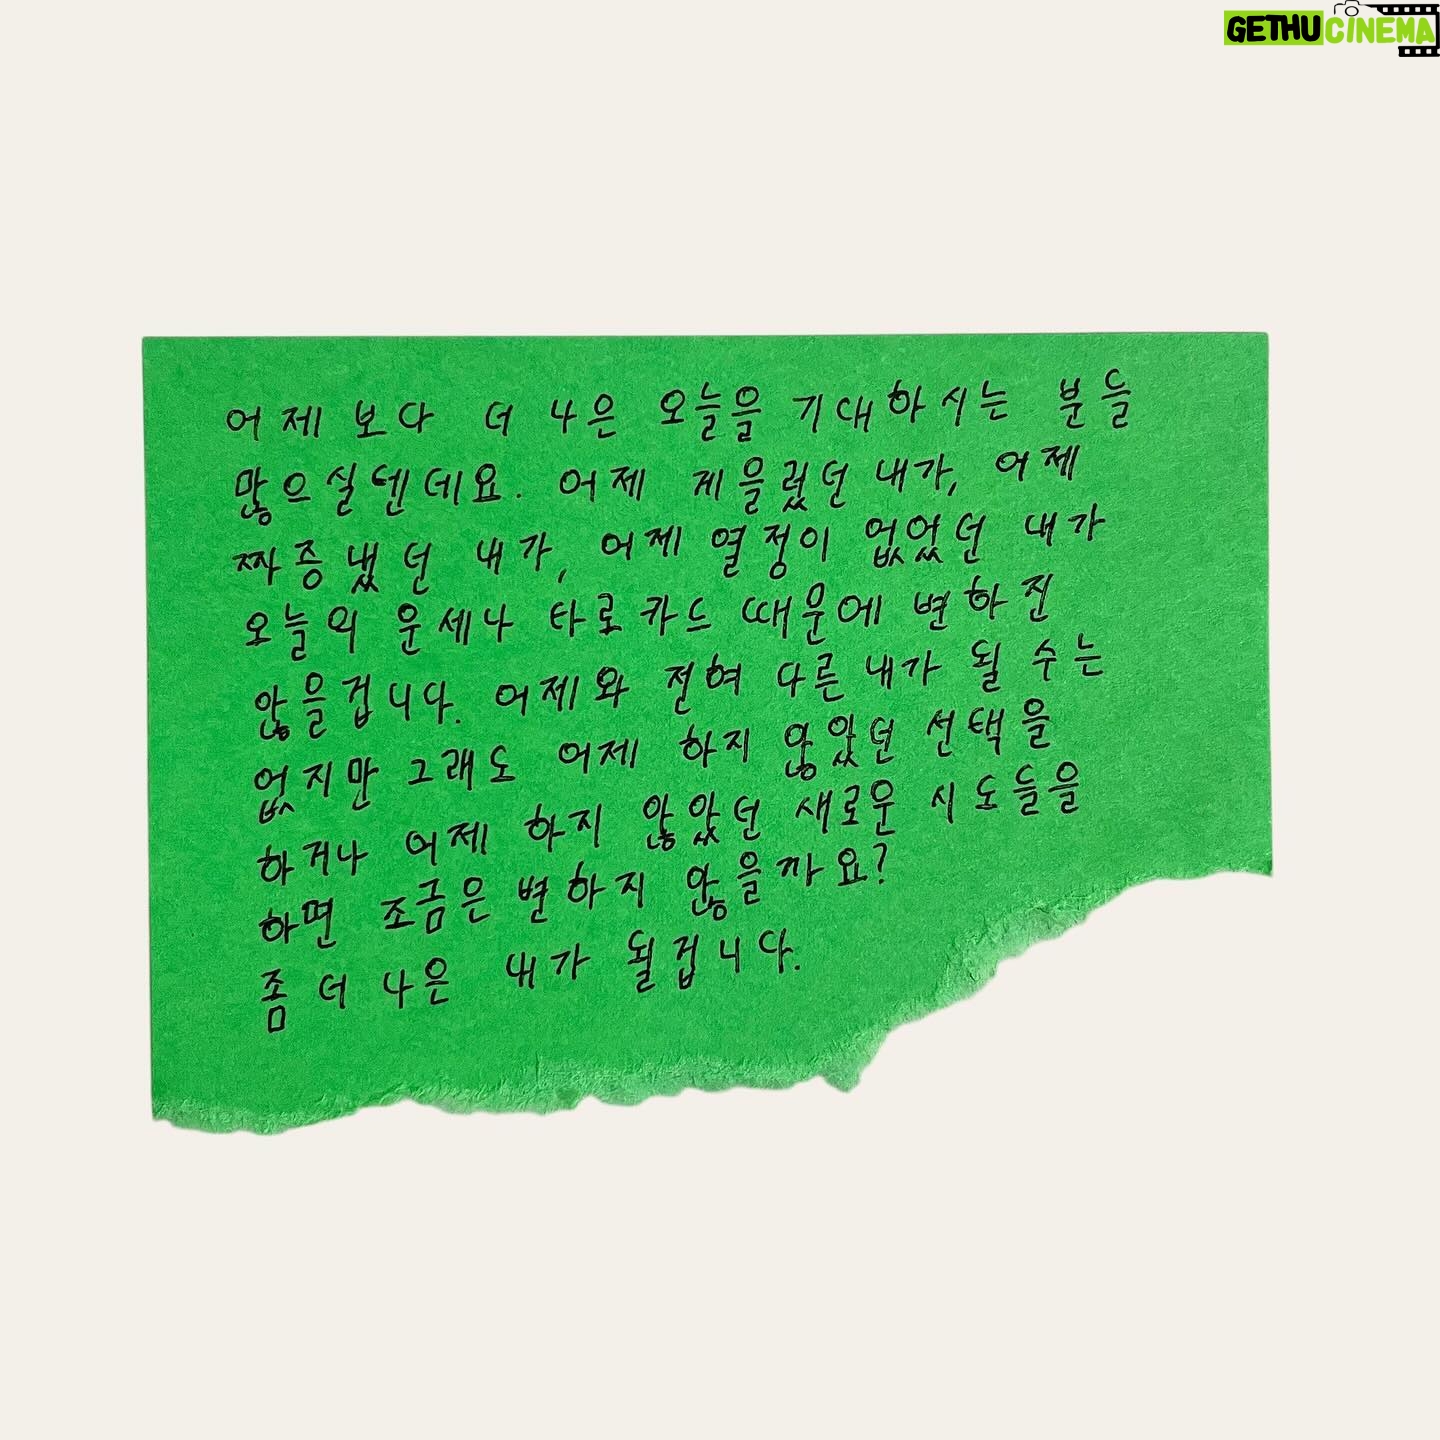 GETHUCINEMA
어제보다 더 나은 오늘을 기대하시는 분들
많으실텐데요. 어제 게을렀던 내가, 어제
짜증냈던 내가, 어제 열정이 없었던 내가
오늘의 운세나 타로카드 때문에 변하진
않을겁니다. 어제와 전혀 다른 내가 될 수는
없지만 그래도 어제 하지 않았던 선택을
하거나 어제 하지 않았던 새로운 시도들을
하면 조금은 변하지 않을까요?
좀 더 나은 내가 될겁니다.